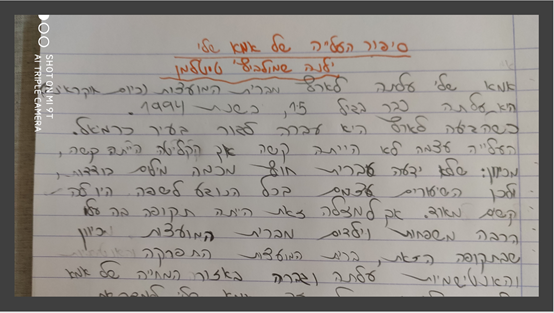 סיפור העלייה של אמא שלי
ילנה שמולביץ' טיטלמן
אמא שלי עלתה לארץ מברית המועצות (כיום אוקראינה)
היא עלתה כבר בגיל 15, בשנת 1994.
כשהגיעה לארץ היא עברה לגור בעיר כרמיאל.
העלייה עצמה לא הייתה קשה אך הקליטה הייתה קשה,
מכיוון: שלא ידעה עברית חוץ מכמה מילים בודדות,
ולכן השיעורים עצמם בכל הנוגע לשפה היו לה
קשים מאוד. אך למזלה זאת היתה תקופה בה עלו
הרבה משפחות וילדים מברית המועצות כיוון
שבתקופה הזאת, ברית המועצות התפרקה
והאנטישמיות עלתה וגברה באזור המחיה של אמא
SHOT ON MI 9T
AI TRIPLE CAMERA